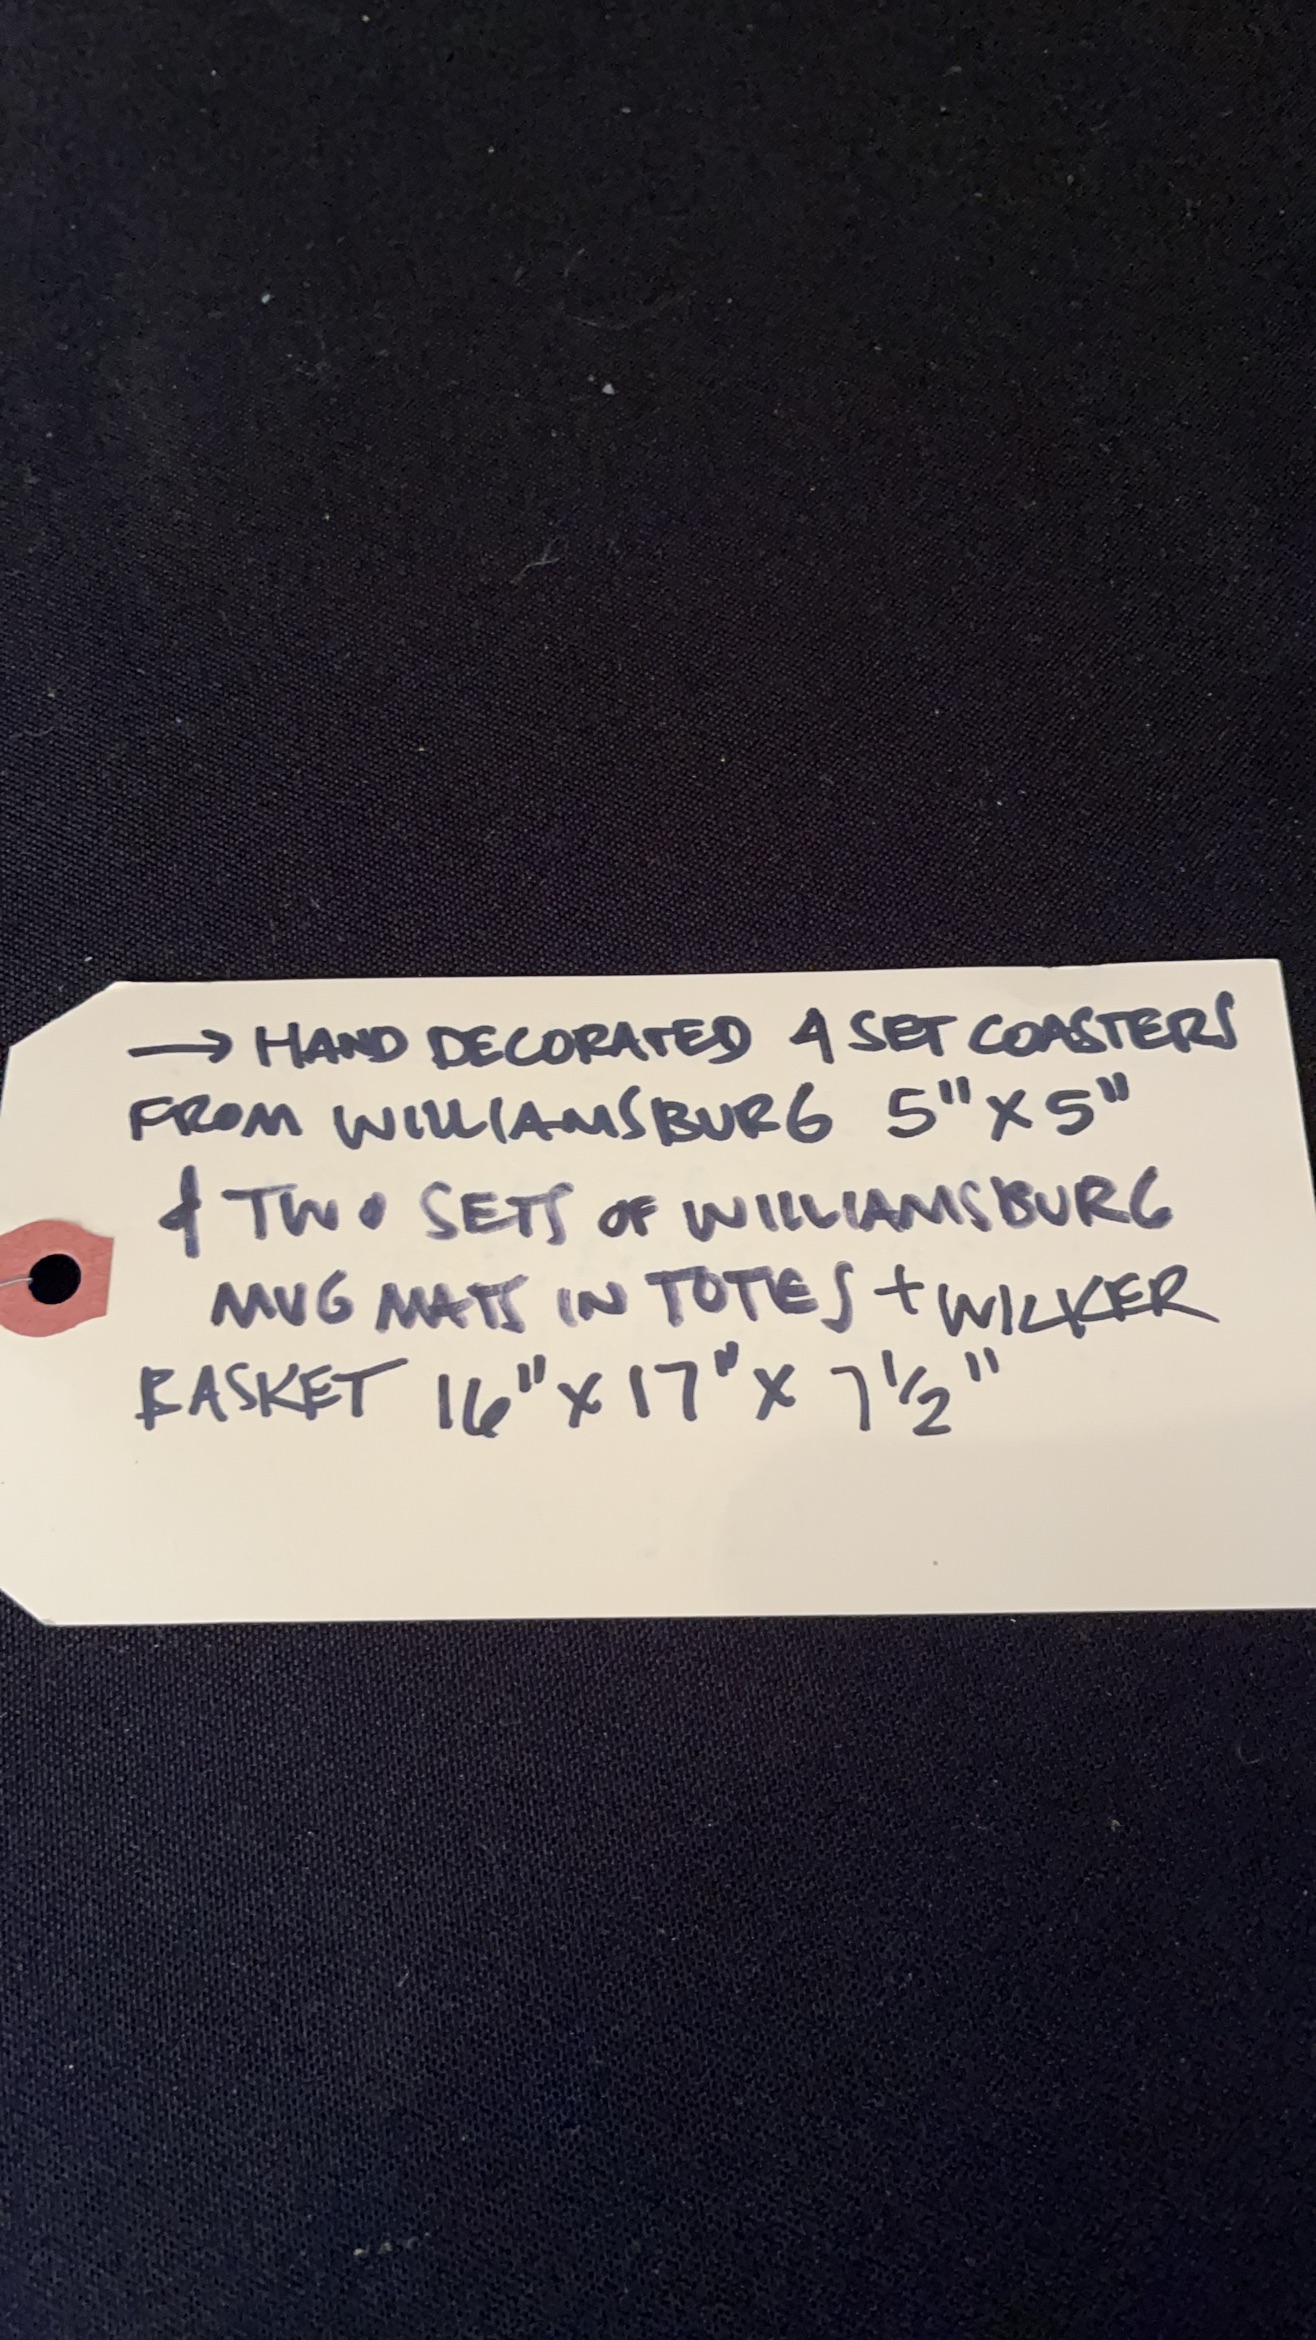 → HAND DECORATED 4 SET COASTERS
FROM WILLIAMSBURG 5" X 5"
& TWO SETS OF WILLIAMSBURG
MUG MATS IN TOTES + WICKER
BASKET 16" X 17" X 7 1/2"